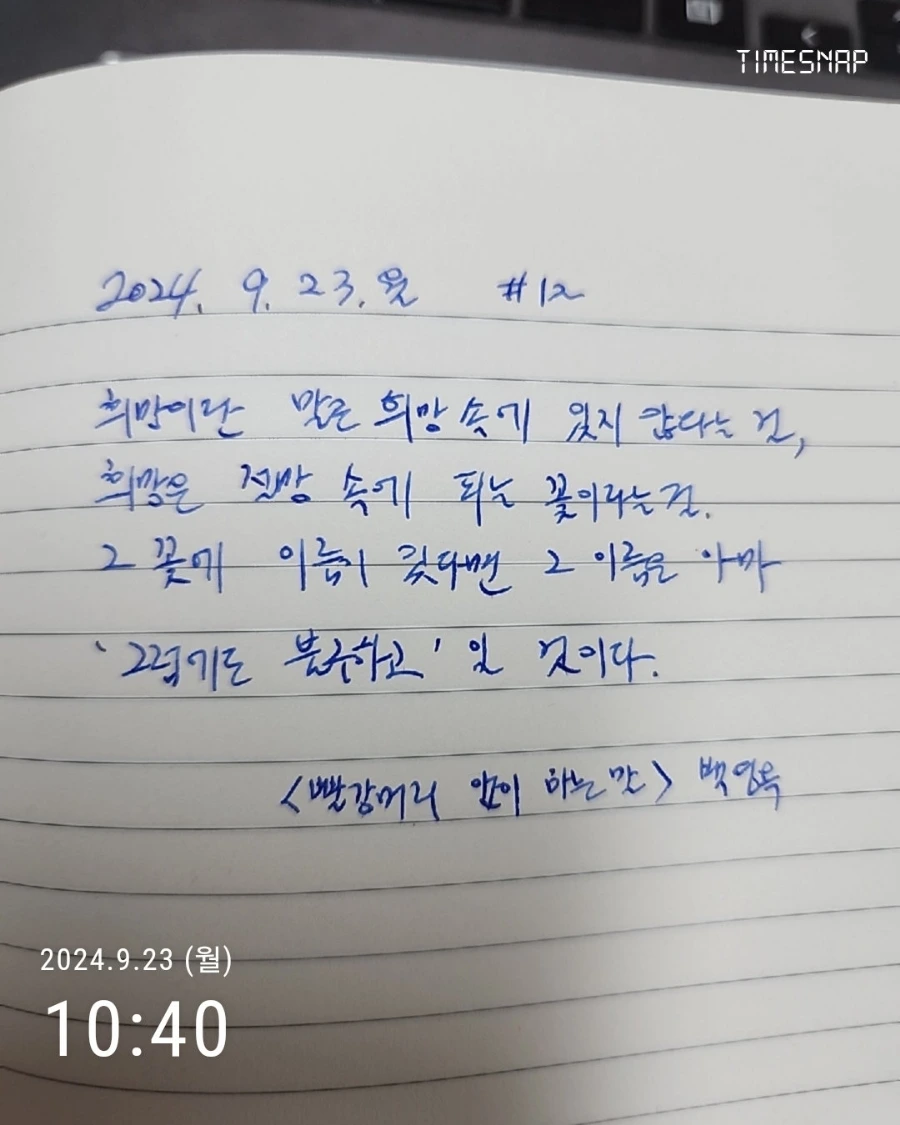 TIMESNAP
2024. 9. 23. 월 #12
희망이란 말은 희망 속에 있지 않다는 걸,
희망은 절망 속에 피는 꽃이라는 걸.
그 꽃에 이름이 있다면 그 이름은 아마
'그럼에도 불구하고' 일 것이다.
<빨강머리 앤이 하는 말> 백영옥
2024.9.23 (월)
10:40